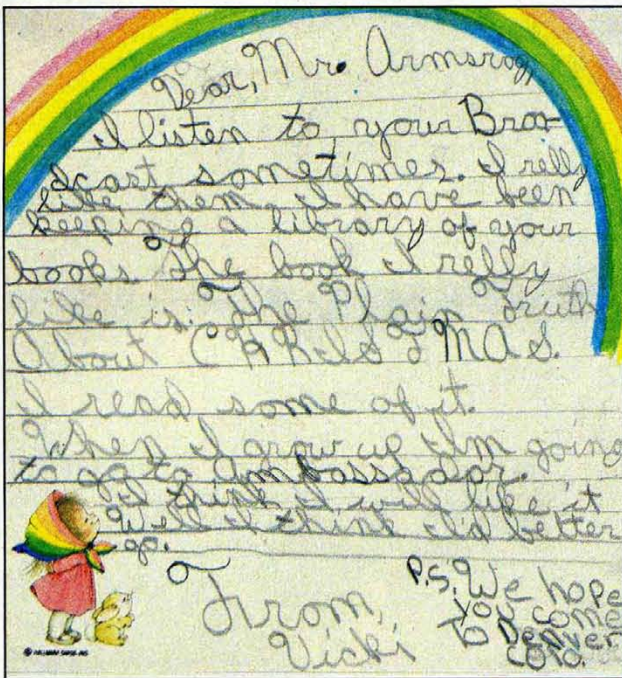 Dear, Mr. Armsrong
I listen to your Broa-
dcast sometimes. I relly
like them. I have been
keeping a library of your
books The book I relly
like is: The Plain Truth
About CHRISTMAS.
I read some of it.
When I grow up I'm going
to go to Ambassador.
I think I will like it
Well I think I'd better
go.
From,
Vicki
P.S. We hope
you come
To Denver
Colo.